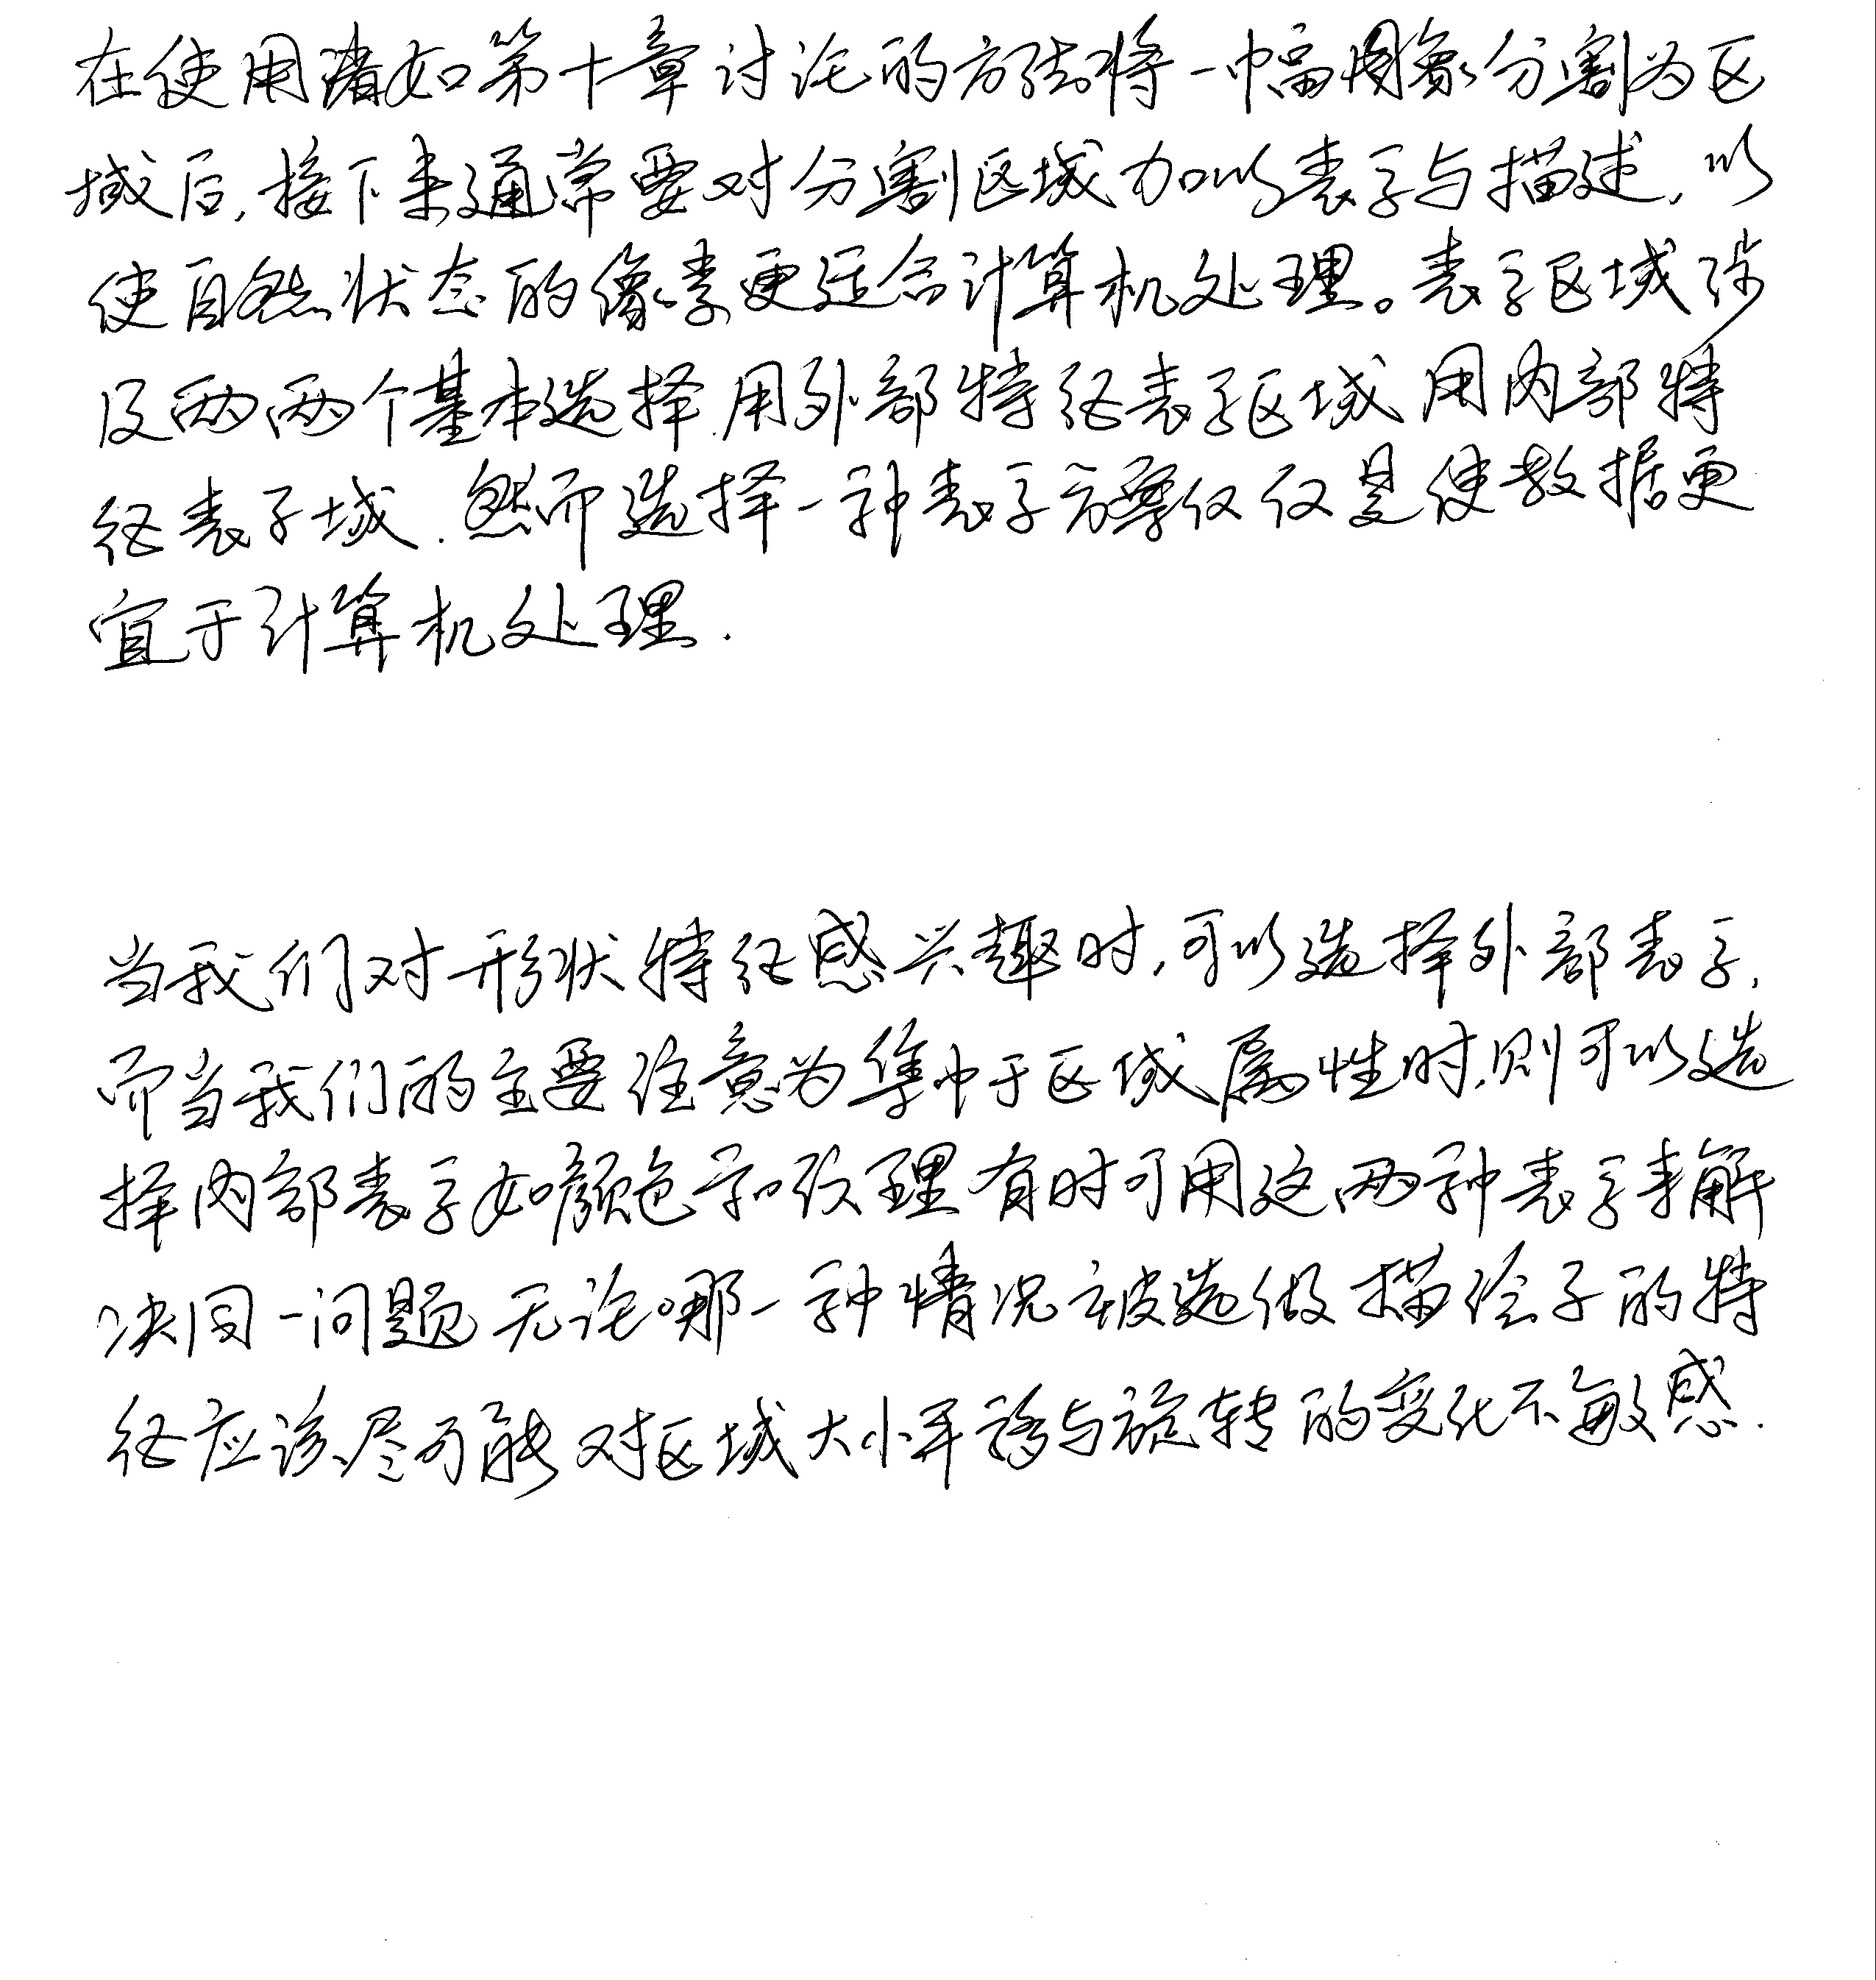 在使用诸如第十章讨论的方法将一幅图象分割为区
域后,接下来通常要对分割区域加以表示与描述,以
使自然状态的像素更适合计算机处理。表示区域涉
及两两个基本选择.用外部特征表示区域用内部特
征表示域.然而选择一种表示方案仅仅是使数据更
宜于计算机处理.
当我们对形状特征感兴趣时,可以选择外部表示,
而当我们的主要注意力集中于区域属性时,则可以选
择内部表示如颜色和纹理有时可用这两种表示来解
决同一问题无论哪一种情况被选做描绘子的特
征应该尽可能对区域大小平移与旋转的变化不敏感.